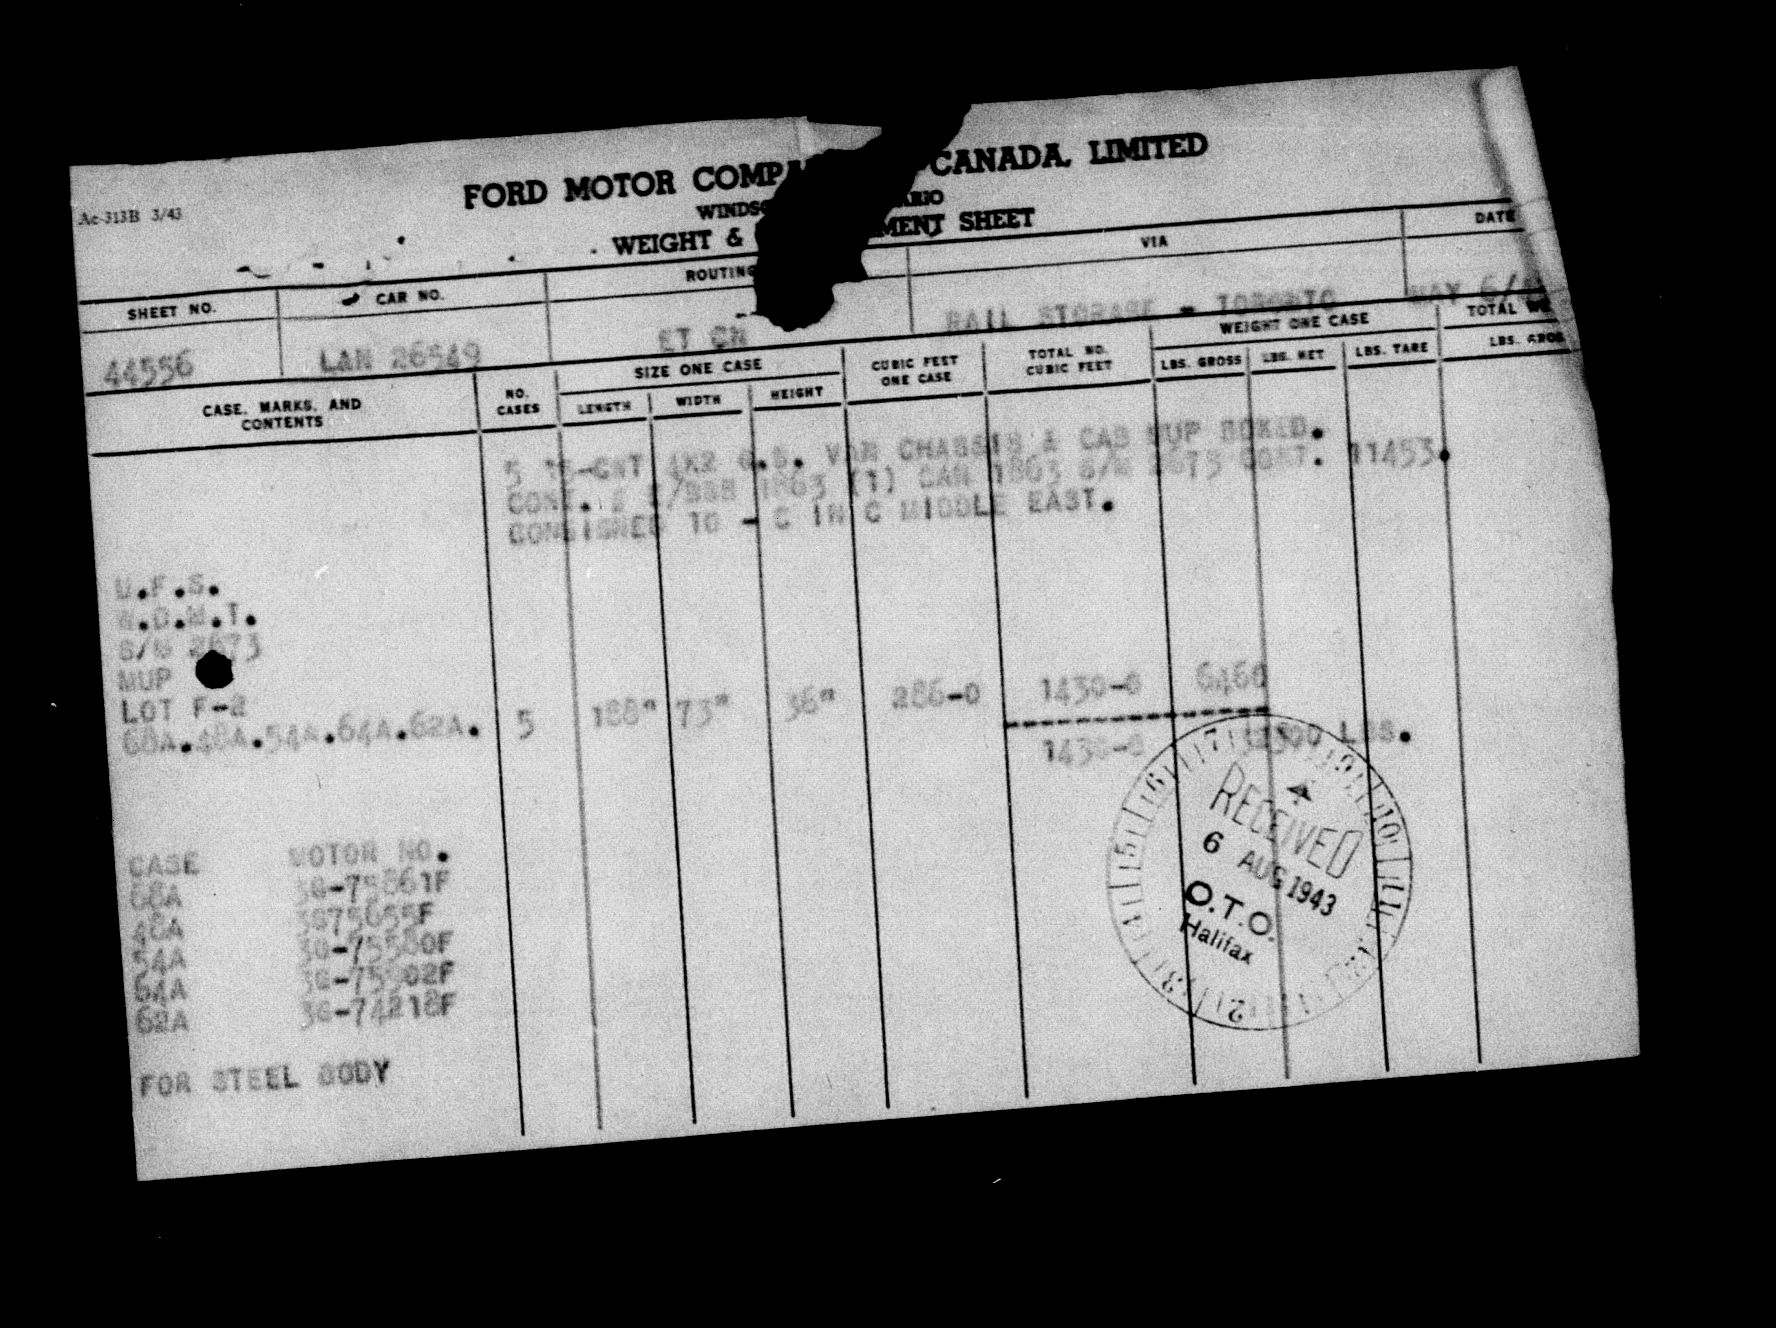 Ac-313B 3/43
FORD MOTOR CANADA, LIMITED
WEIGHT & SHEET
SHEET NO. CAR NO. ROUTING VIA DATE
44556 LAN 26549 ET CN RAIL STORAGE - TORONTO MAY
CASE, MARKS, AND CONTENTS
NO. CASES
SIZE ONE CASE
LENGTH WIDTH HEIGHT
CUBIC FEET ONE CASE
TOTAL NO. CUBIC FEET
WEIGHT ONE CASE
LBS. GROSS LBS. NET LBS. TARE
TOTAL
LBS.
5 15-CWT 4X2 G.S. VAN CHASSIS & CAB SUP BOXED.
CONT. 1863 (1) CAN 1863 S/M 2673 CONT. 11453.
CONSIGNED TO - C IN C MIDDLE EAST.
U.F.S.
S/M 2673
MUP
LOT F-2
68A.48A.54A.64A.62A. 5 188" 73" 36" 286-0 1430-0 6460
1430-0 32300 LBS.
CASE MOTOR NO.
68A 3G-75861F
48A
54A
64A
62A 3G-74218F
FOR STEEL BODY
7 9 10 11 12 1 2 3 4 5 6
RECEIVED
6 AUG 1943
O.T.O.
Halifax